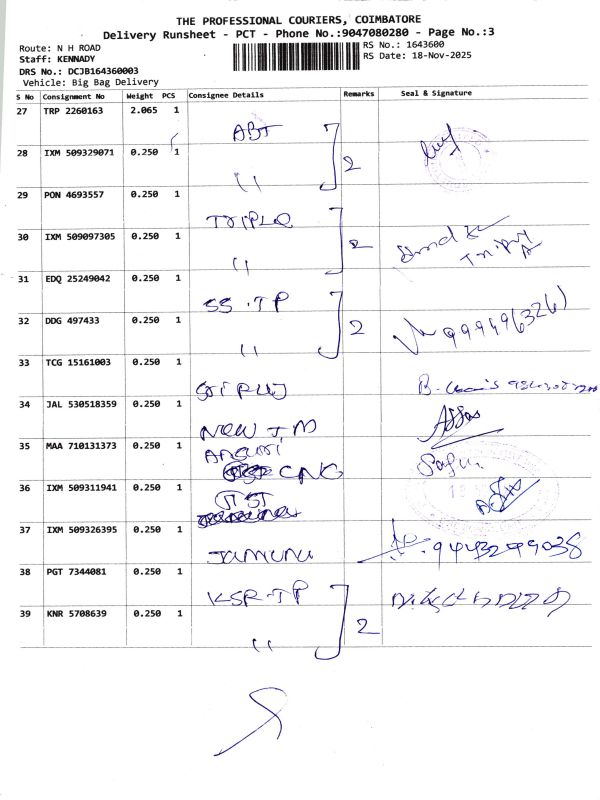 THE PROFESSIONAL COURIERS, COIMBATORE
Delivery Runsheet - PCT - Phone No.:9047080280 - Page No.:3
Route: N H ROAD
RS No.: 1643600
Staff: KENNADY
RS Date: 18-Nov-2025
DRS No.: DCJB164360003
Vehicle: Big Bag Delivery
S No Consignment No Weight PCS Consignee Details Remarks Seal & Signature
27 TRP 2260163 2.065 1
ABT
28 IXM 509329071 0.250 1
2
,,
29 PON 4693557 0.250 1
TRIPLE
30 IXM 509097305 0.250 1
2
,,
31 EDQ 25249042 0.250 1
SS.TP
32 DDG 497433 0.250 1
2
,,
33 TCG 15161003 0.250 1
34 JAL 530518359 0.250 1
NEW JM
35 MAA 710131373 0.250 1
CNG
36 IXM 509311941 0.250 1
37 IXM 509326395 0.250 1
Jamuna 9443299038
38 PGT 7344081 0.250 1
KSR-TP
39 KNR 5708639 0.250 1
2
,,